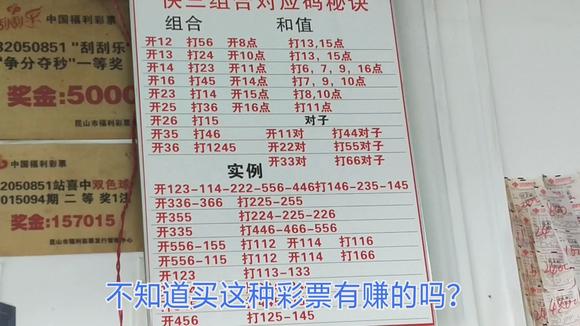 中国福利彩票
2050851 "刮刮乐"
"争分夺秒"一等奖
奖金:5000
昆山市福利彩票
中国福利彩票
2050851站喜中双色球
2015094期 二等奖1注
奖金:157015
昆山市福利彩票发行管理中心
快三组合对应码秘诀
组合 和值
开12 打56 开8点 打13,15点
开13 打24 开10点 打13，15点
开14 打23 开11点 打6，7，9，16点
开16 打45 开14点 打7，9，13点
开23 打14 开15点 打8,10点
开25 打36 开16点 打11点
开26 打15 对子
开35 打46 开11对 打44对子
开36 打1245 开22对 打55对子
开33对 打66对子
实例
开123-114-222-556-446打146-235-145
开336-366 打225-255
开355 打224-225-226
开335 打446-466-556
开556-115 打112 开114 打116
开556-155 打112 开114 打166
开123 打113-133
不知道买这种彩票有赚的吗？
开456 打125-145